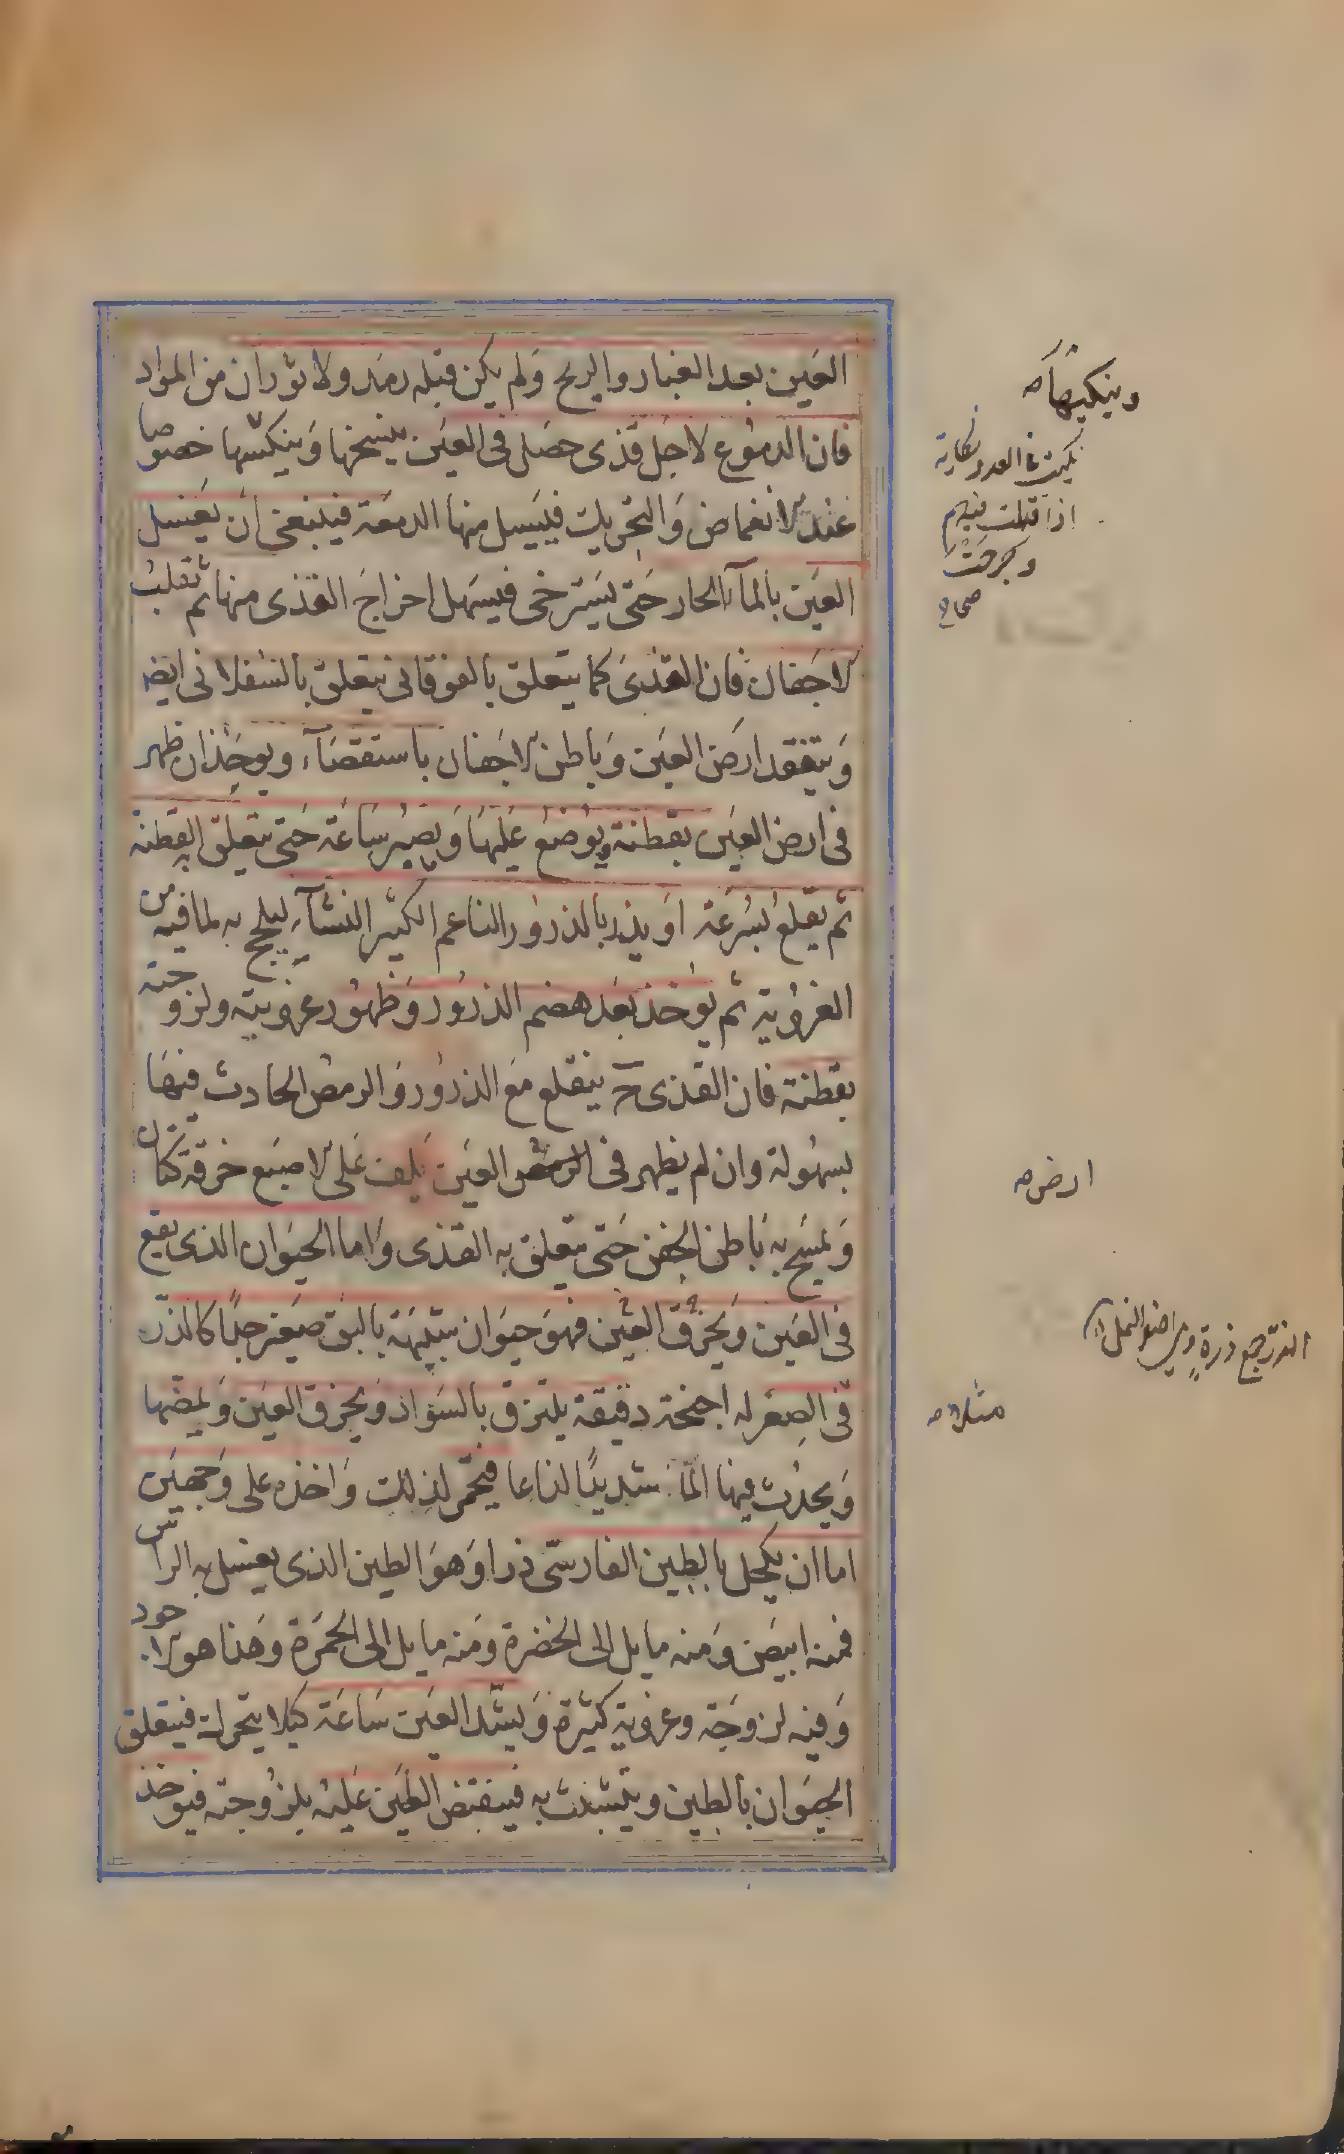 العَين بعد الغبار والريح وَلم يكن قبله رمد ولا ثوران من المواد
فان الدموع لاجل قذى حصَل فى العيَن يسخنها وَينكئها خصوصا
عند الانغماض وَالتحريك فيسيل منها الدمعَة فينبغى ان يَغسل
العيَن بالمآ الحار حَتى يَسترخى فيسهل اخراجَ القذى منها ثم تقلب
الاجَفان فان القذىَ كما يتعلق بالفوقانى يتعلق بالسفلانى ايضا
وَيتفقد ارضَ العيَن وَباطن الاجَفان باستقصآء ويوخَذ ان ظهر
فى ارض العيَن بقطنة يوُضعُ عَليهَا وَيصبُر سَاعَة حَتى يتعَلق بالقطنة
ثم يقلعُ بسُرعَة اوَ يذر بالذرور الناعم الكثير النشآء ليلحج به لما فيه من
الغروُية ثم يوُخذ بعَد هضم الذرُور وَظهوُر غروَيته ولزوجته
بقطنة فان القذى حَ ينقلع معَ الذروُر وَالرمص الحادث فيهَا
بسهُولة وان لم يظهر فى العيَن يَلف عَلى الاصبَع خرقة كتان
وَيمسَح به بَاطن الجفن حَتى يتعَلق به القذى وَاما الحيَوان الذى يقع
فى العَين وَيَحرق العيَن فهوَ حيَوان شبيهَة بالبق صَغير جدًا كالذّر
فى الصِغر له اجنحَة دقيقة يلتزق بالسَواد وَيحرق العيَن وَيمضّها
وَيحدُث فيها المًا شديدًا لذاعا فيحمّر لذلك وَاخذه على وَجهَين
اما ان يكحل بالطين الفارسى ذرا وَهوَ الطين الذى يغسل به الراس
فمنه ابيَض وَمنه مايل الى الخضرة ومَنه مايل الى الحُمَرة وَهذا هو الاجود
وَفيه لزوجَة وغروية كثيرة وَيشّد العيَن سَاعَة كيلا يتحرك فيتعلق
الحيَوان بالطين ويتشبث به فينقبض الطيَن عَليه بلزوُجته فيوخذ
وينكيهَا صه
نكيت فى العدو نكاية
اذا قتلت فيهم
وجرحت
صحاح
ارض صه
الذر جمع ذرة وهى اصغر النمل
مثلا صه